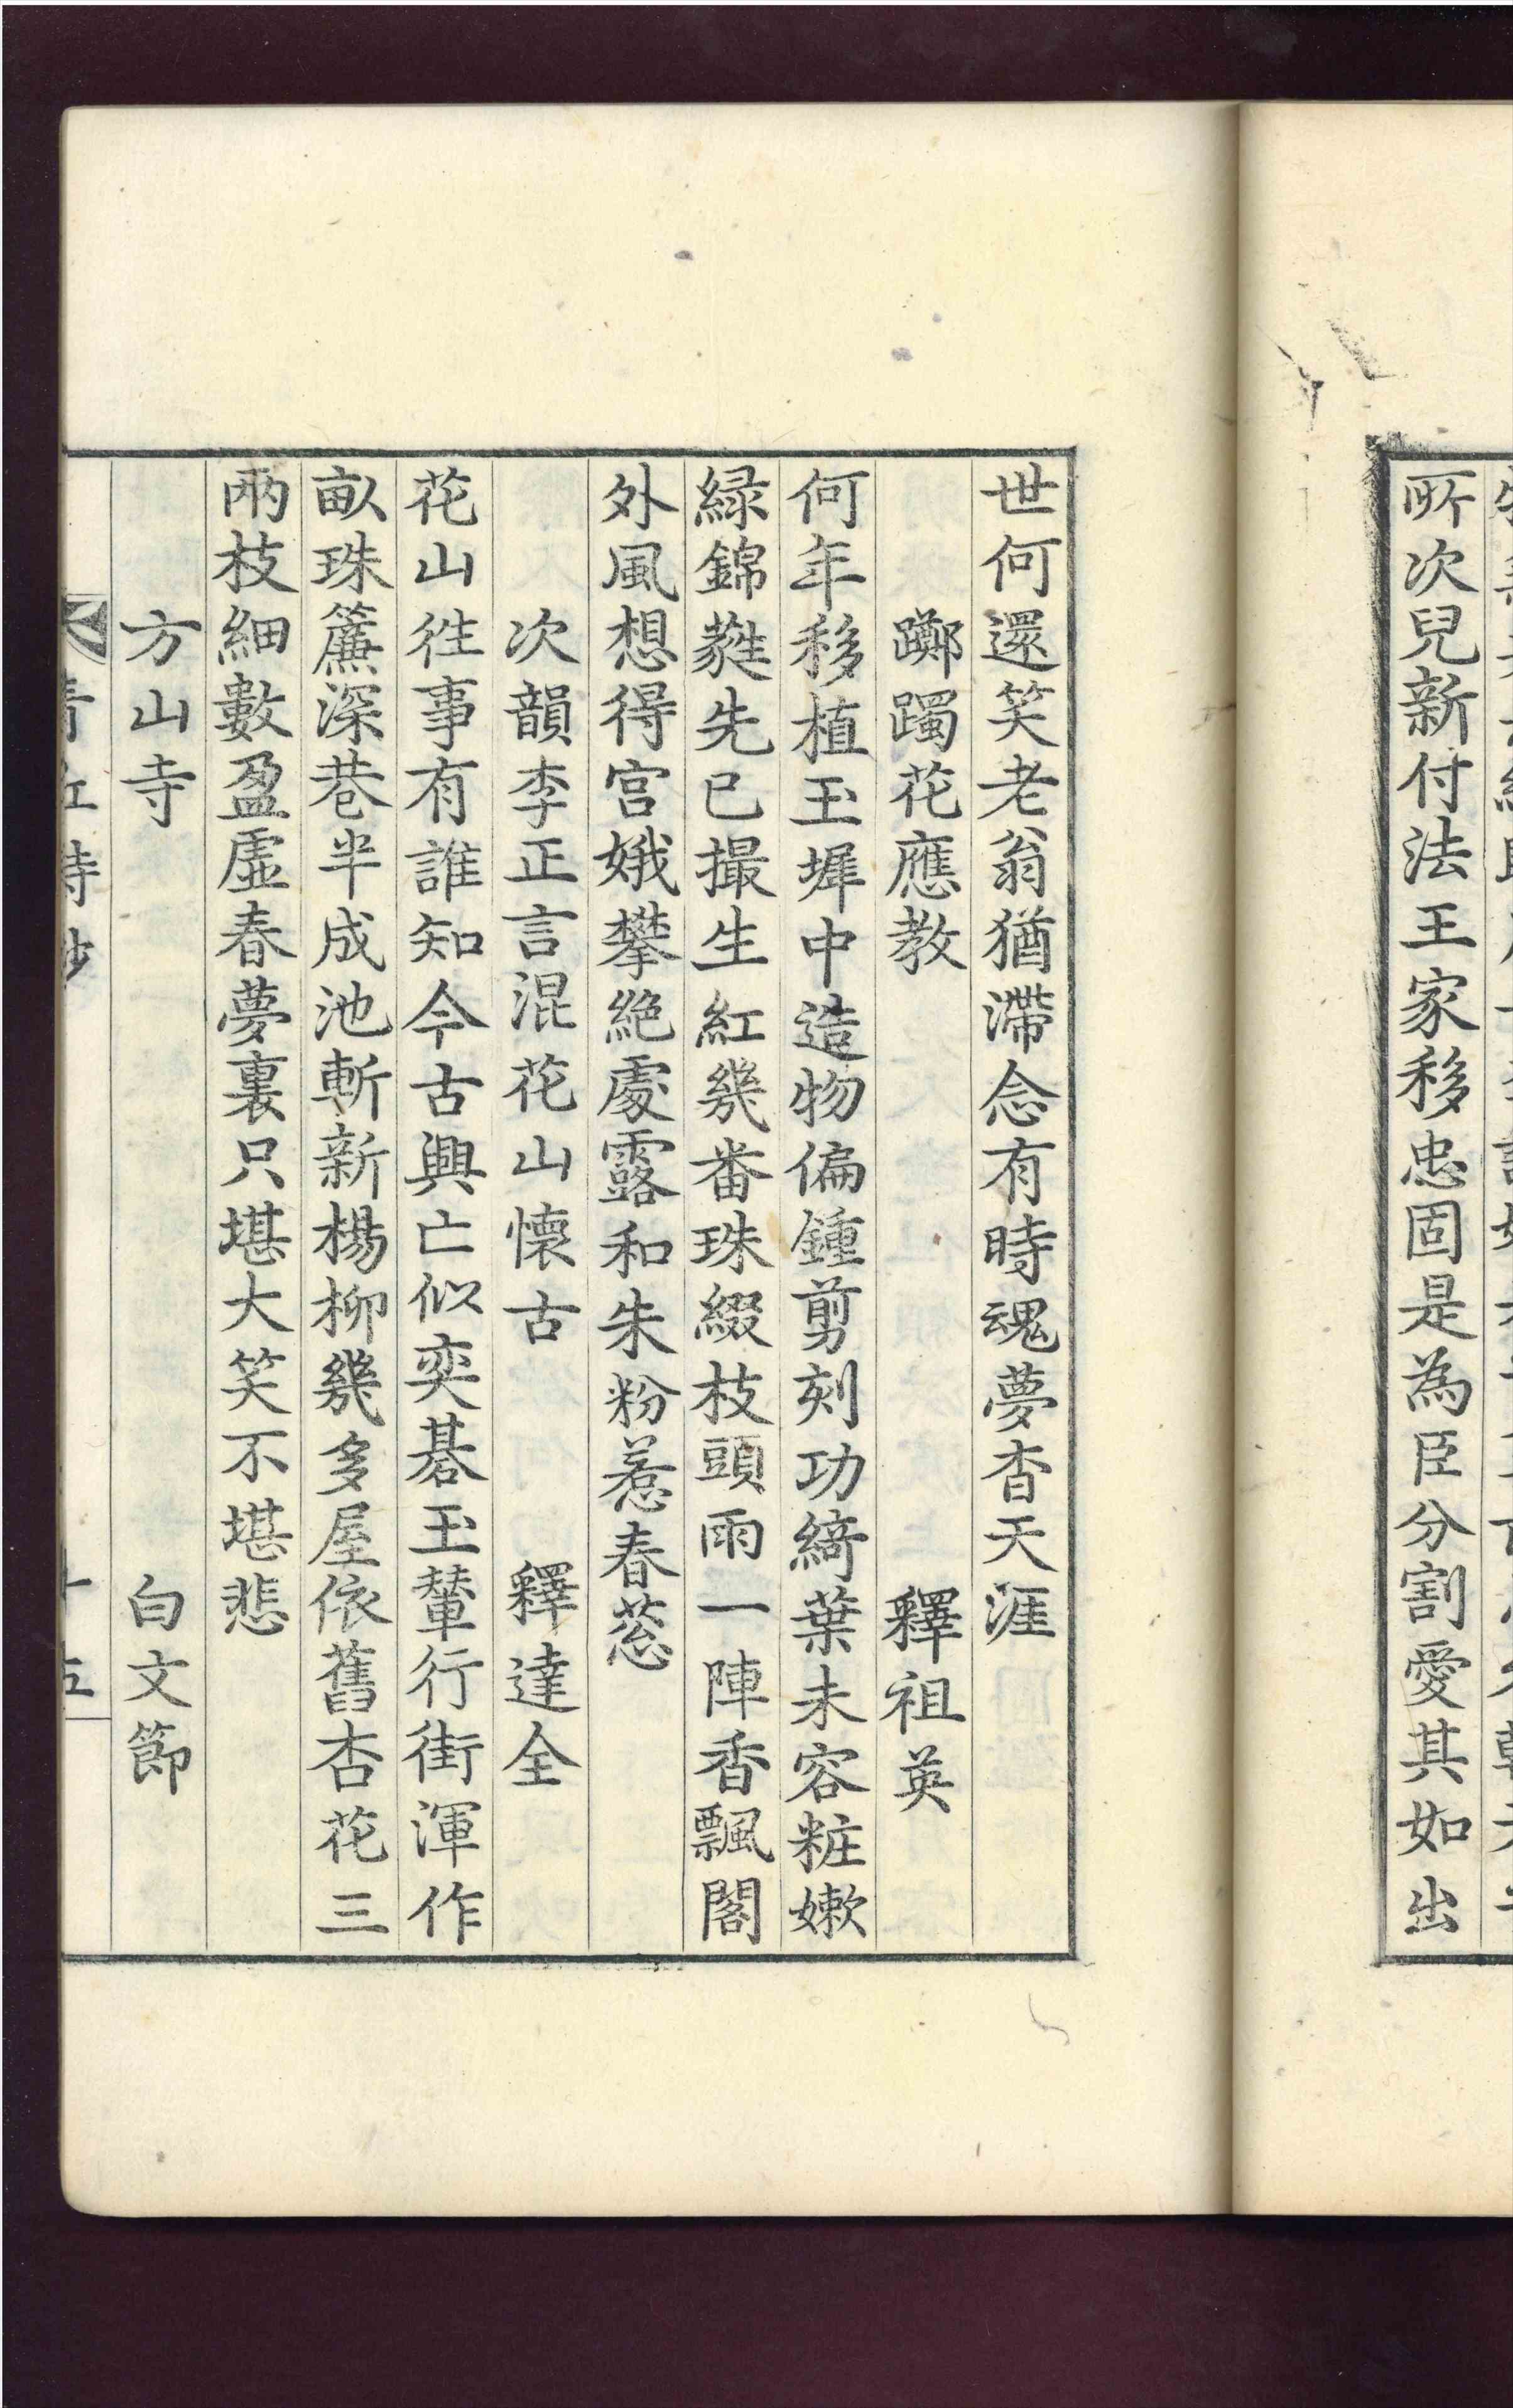 所次兒新付法王家移忠固是為臣分割愛其如出
世何還笑老翁猶滯念有時魂夢杳天涯
躑躅花應教 釋祖英
何年移植玉墀中造物偏鍾剪刻功綺葉未容粧嫰
緑錦蕤先已撮生紅幾番珠綴枝頭雨一陣香飄閣
外風想得宮娥攀絶處露和朱粉惹春䓗
次韻李正言混花山懷古 釋達全
花山徃事有誰知今古興亡似奕碁玉輦行街渾作
畝珠簾深巷半成池斬新楊柳幾多屋依舊杏花三
兩枝細數盈虛春夢裏只堪大笑不堪悲
方山寺 白文節
十五